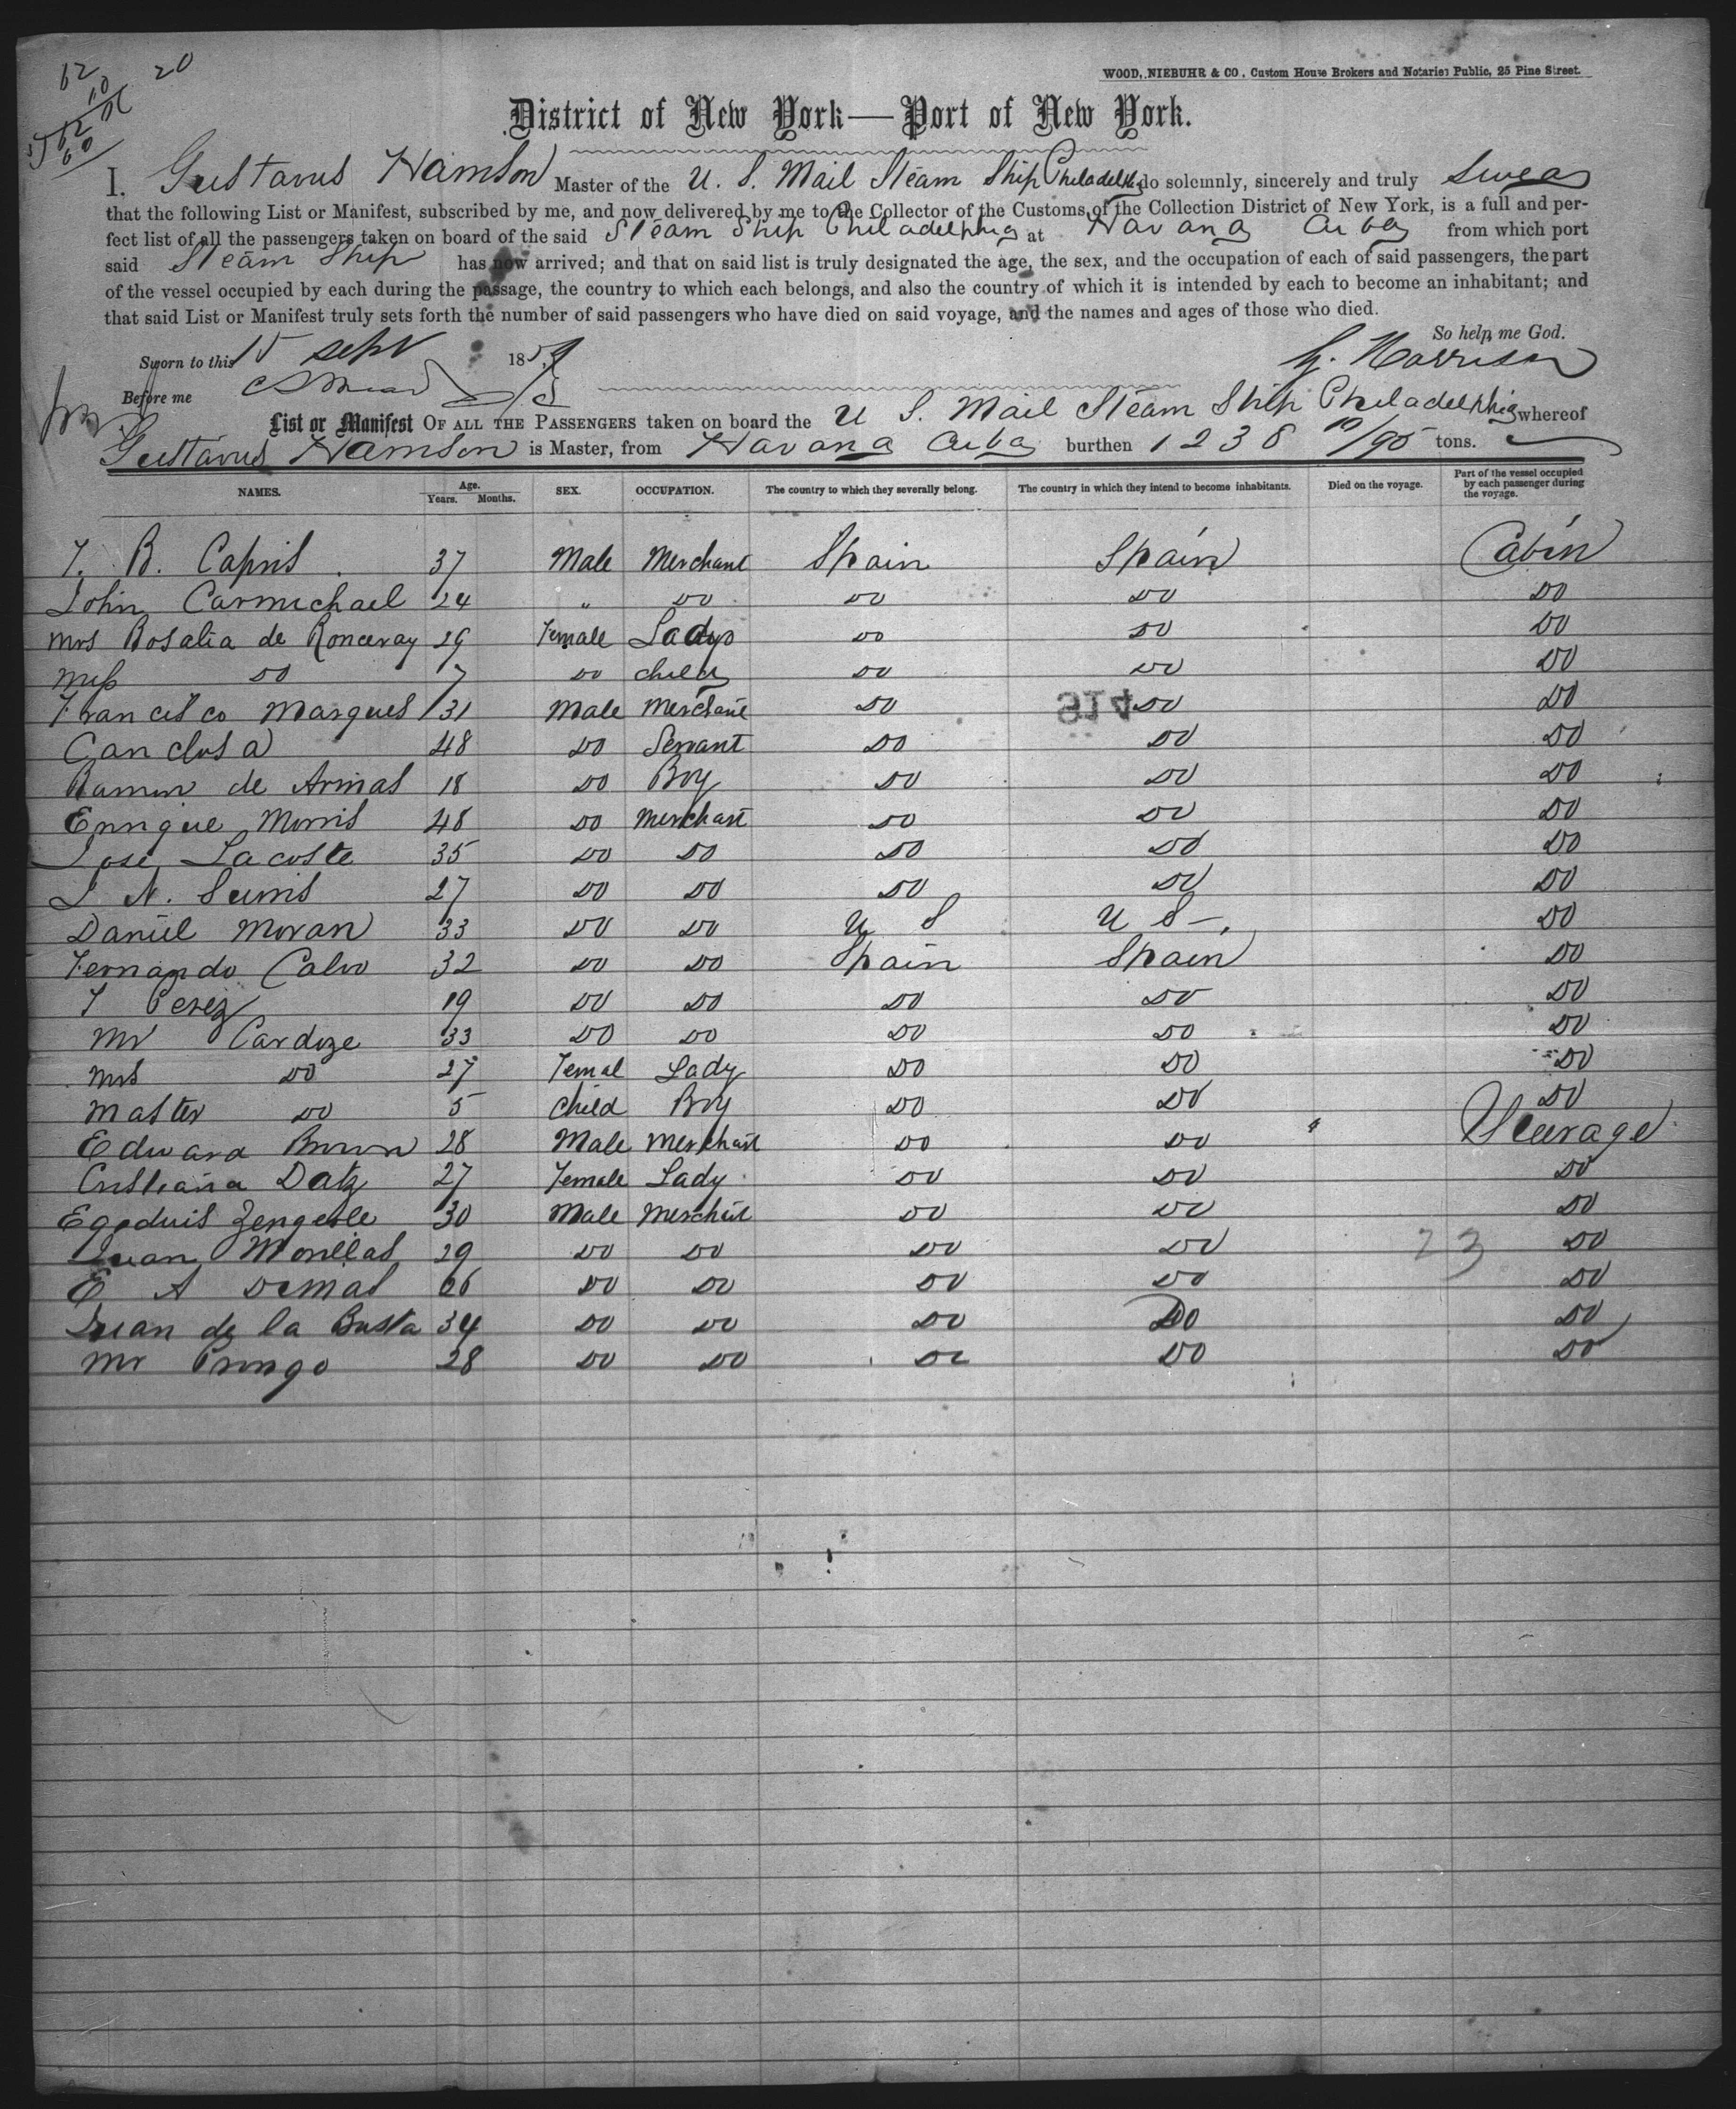 62 20
10
WOOD, NIEBUHR & CO, Custom House Brokers and Notaries Public, 25 Pine Street.
District of New York—Port of New York.
I. Gustavus Harrison Master of the U. S. Mail Steam Ship Philadelphia do solemnly, sincerely and truly Swear
that the following List or Manifest, subscribed by me, and now delivered by me to the Collector of the Customs of the Collection District of New York, is a full and per-
fect list of all the passengers taken on board of the said Steam Ship Philadelphia at Havana Cuba from which port
said Steam Ship has now arrived; and that on said list is truly designated the age, the sex, and the occupation of each of said passengers, the part
of the vessel occupied by each during the passage, the country to which each belongs, and also the country of which it is intended by each to become an inhabitant; and
that said List or Manifest truly sets forth the number of said passengers who have died on said voyage, and the names and ages of those who died.
So help me God.
Sworn to this 15 Sept 1859 G. Harrison
Before me
List or Manifest OF ALL THE PASSENGERS taken on board the U S. Mail Steam Ship Philadelphia whereof
Gustavus Harrison is Master, from Havana Cuba burthen 1238 /95 tons.
NAMES. Age. Years. Months. SEX. OCCUPATION. The country to which they severally belong. The country in which they intend to become inhabitants. Died on the voyage. Part of the vessel occupied by each passenger during the voyage.
B. 37 Male Merchant Spain Spain Cabin
John Carmichael 24 " Do Do Do Do
Mrs Rosalia de Ronceray 29 Female Lady Do Do Do
Miss Do 7 Do child Do Do Do
Francisco Marques 31 Male Merchant Do Do Do
914
48 Do Servant Do Do Do
Ramon de Armas 18 Do Boy Do Do Do
Enrique Morris 48 Do Merchant Do Do Do
Jose Lacoste 35 Do Do Do Do Do
J N. 27 Do Do Do Do Do
Daniel Moran 33 Do Do U S U S Do
Fernando Calvo 32 Do Do Spain Spain Do
Perez 19 Do Do Do Do Do
Mr Cardoze 33 Do Do Do Do Do
Mrs Do 27 Femal Lady Do Do Do
Master Do 5 Child Boy Do Do Do
Edward Brown 28 Male Merchant Do Do Steerage
Cristiana Datz 27 Female Lady Do Do Do
Zengerle 30 Male Merchant Do Do Do
Juan 29 Do Do Do Do 23 Do
E A Do Do Do Do Do
Juan de la Busta 34 Do Do Do Do Do
Mr 28 Do Do Do Do Do